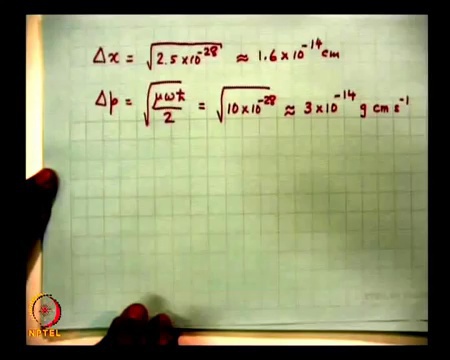 Δx = √2.5×10⁻²⁸ ≈ 1.6×10⁻¹⁴ cm
Δp = √μωℏ/2 = √10×10⁻²⁸ ≈ 3×10⁻¹⁴ g cm s⁻¹
NPTEL